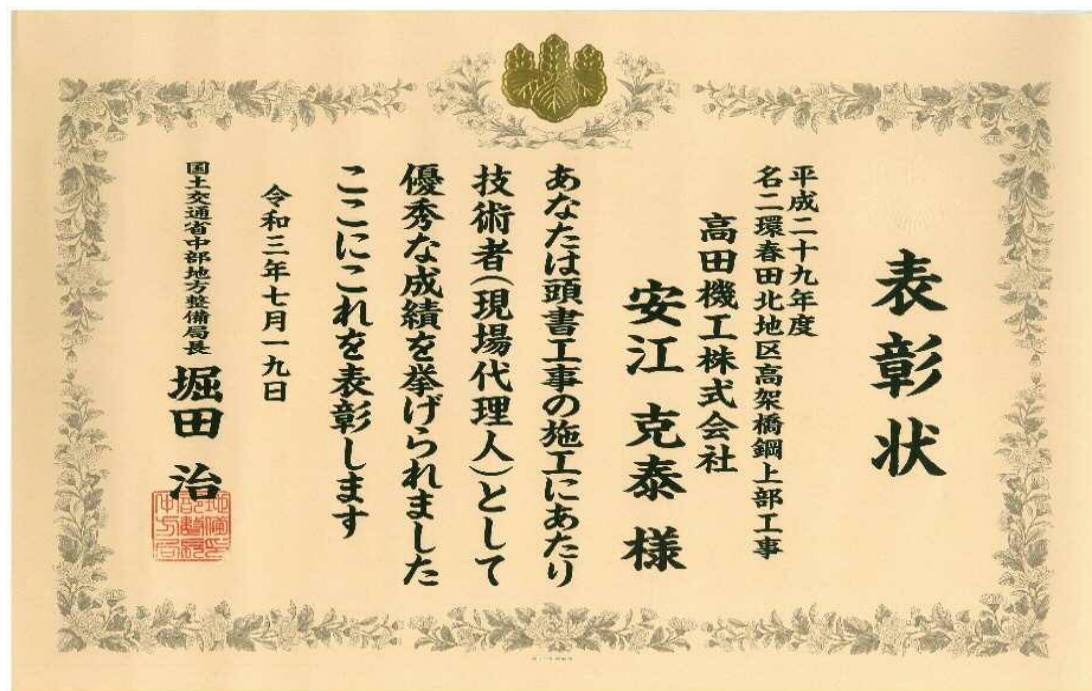 表彰状
平成二十九年度
名二環春田北地区高架橋鋼上部工事
高田機工株式会社
安江 克泰 様
あなたは頭書工事の施工にあたり
技術者(現場代理人)として
優秀な成績を挙げられました
ここにこれを表彰します
令和三年七月一九日
国土交通省中部地方整備局長 堀田 治